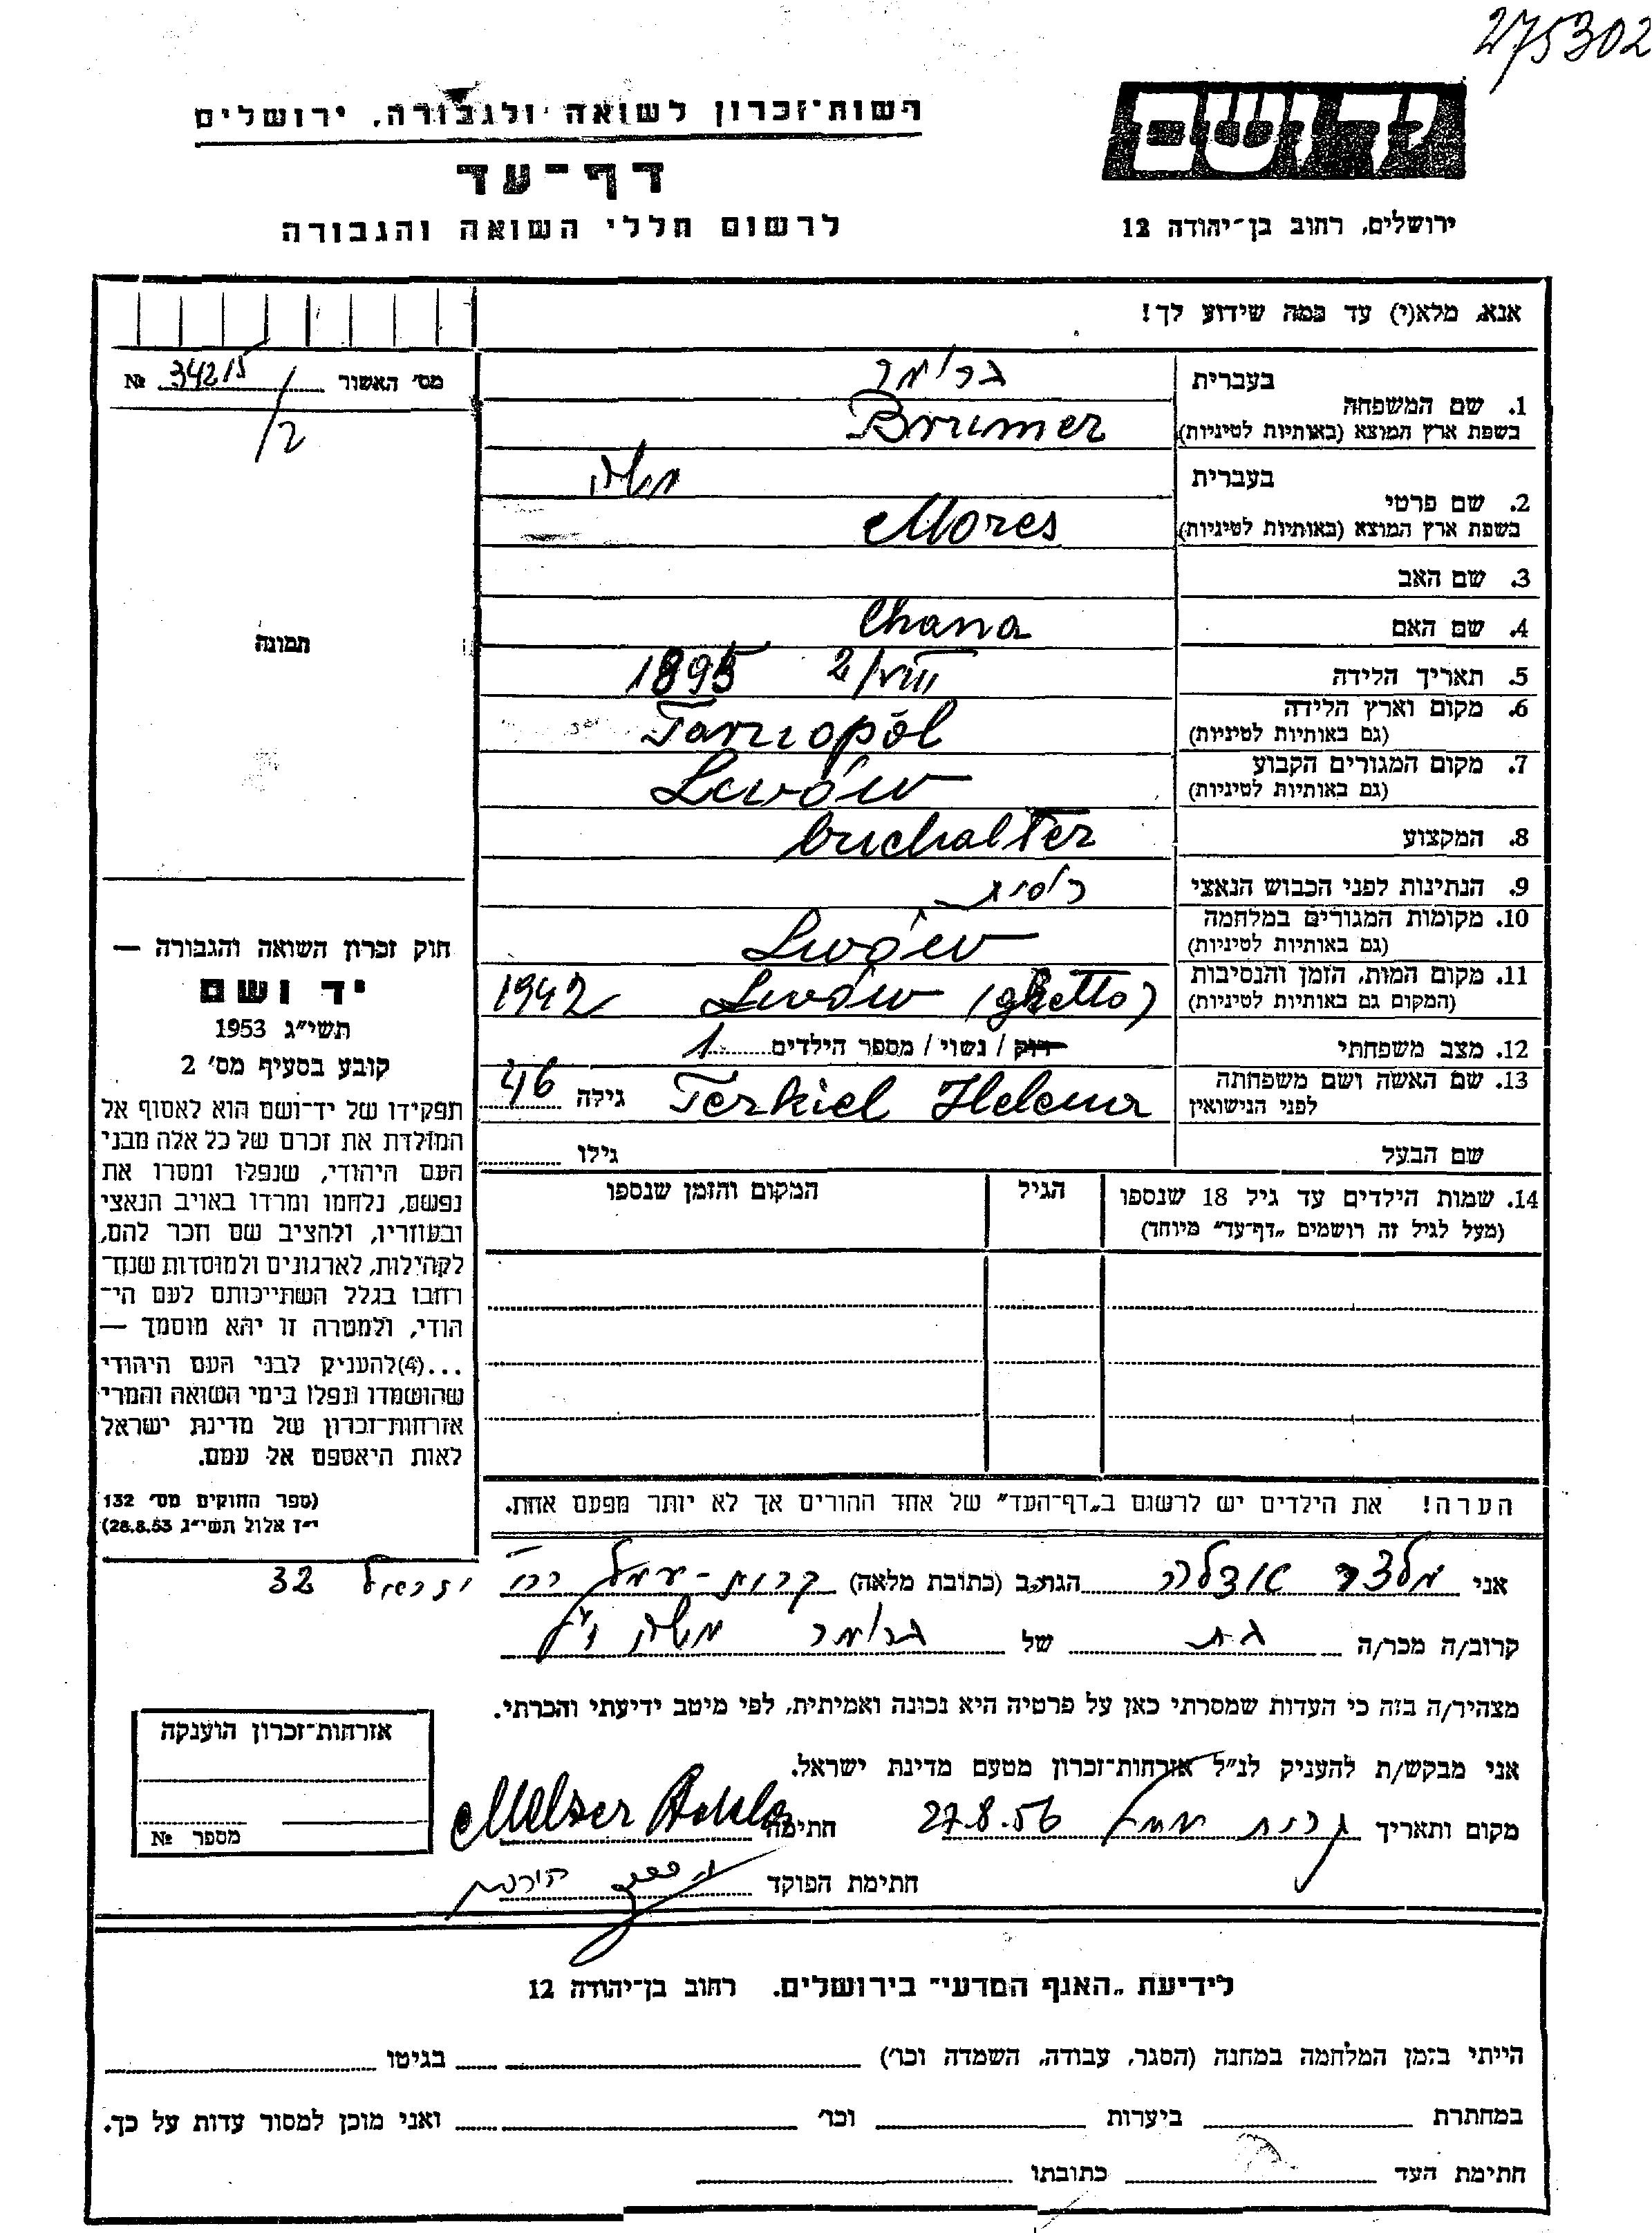 275302
יד ושם
רשות־זכרון לשואה ולגבורה, ירושלים
דף־עד
לרשום חללי השואה והגבורה
ירושלים, רחוב בן־יהודה 12
אנא, מלא(י) עד כמה שידוע לך!
מס׳ האשור № 34215
/2
תמונה
בעברית ברומר
1. שם המשפחה
בשפת ארץ המוצא (באותיות לטיניות) Brumer
בעברית משה
2. שם פרטי
בשפת ארץ המוצא (באותיות לטיניות) Mozes
3. שם האב
4. שם האם Chana
5. תאריך הלידה 2/VIII 1895
6. מקום וארץ הלידה
(גם באותיות לטיניות) Tarnopól
7. מקום המגורים הקבוע
(גם באותיות לטיניות) Lwów
8. המקצוע buchalter
9. הנתינות לפני הכבוש הנאצי
10. מקומות המגורים במלחמה
(גם באותיות לטיניות) Lwów
11. מקום המות, הזמן והנסיבות
(המקום גם באותיות לטיניות) Lwów (ghetto) 1942
12. מצב משפחתי רווק / נשוי / מספר הילדים 1
13. שם האשה ושם משפחתה
לפני הנישואין Terkiel Helena גילה 46
שם הבעל גילו
14. שמות הילדים עד גיל 18 שנספו
(מעל לגיל זה רושמים „דף־עד” מיוחד)
הגיל
המקום והזמן שנספו
הערה! את הילדים יש לרשום ב„דף־העד” של אחד ההורים אך לא יותר מפעם אחת.
חוק זכרון השואה והגבורה —
יד ושם
תשי״ג 1953
קובע בסעיף מס׳ 2
תפקידו של יד־ושם הוא לאסוף אל
המולדת את זכרם של כל אלה מבני
העם היהודי, שנפלו ומסרו את
נפשם, נלחמו ומרדו באויב הנאצי
ובעוזריו, ולהציב שם וזכר להם,
לקהילות, לארגונים ולמוסדות שנח־
רחבו בגלל השתייכותם לעם הי־
הודי, ולמטרה זו יהא מוסמך —
...(4)להעניק לבני העם היהודי
שהושמדו ונפלו בימי השואה והמרי
אזרחות־זכרון של מדינת ישראל
לאות היאספם אל עמם.
(ספר החוקים מס׳ 132
י״ז אלול תשי״ג 28.8.53)
אני מלצר אדלה הגר/ב (כתובת מלאה) קרית-עמל רח׳ יזרעאל 32
קרוב/ה מכר/ה בת של ברומר משה ז״ל
מצהיר/ה בזה כי העדות שמסרתי כאן על פרטיה היא נכונה ואמיתית, לפי מיטב ידיעתי והכרתי.
אני מבקש/ת להעניק לנ״ל אזרחות־זכרון מטעם מדינת ישראל.
מקום ותאריך קרית עמל 27.8.56 חתימה Melzer Adela
חתימת הפוקד
אזרחות־זכרון הוענקה
מספר №
לידיעת „האגף המדעי” בירושלים. רחוב בן־יהודה 12
הייתי בזמן המלחמה במחנה (הסגר, עבודה, השמדה וכו׳) בגיטו
במחתרת ביערות וכו׳ ואני מוכן למסור עדות על כך.
חתימת העד כתובתו